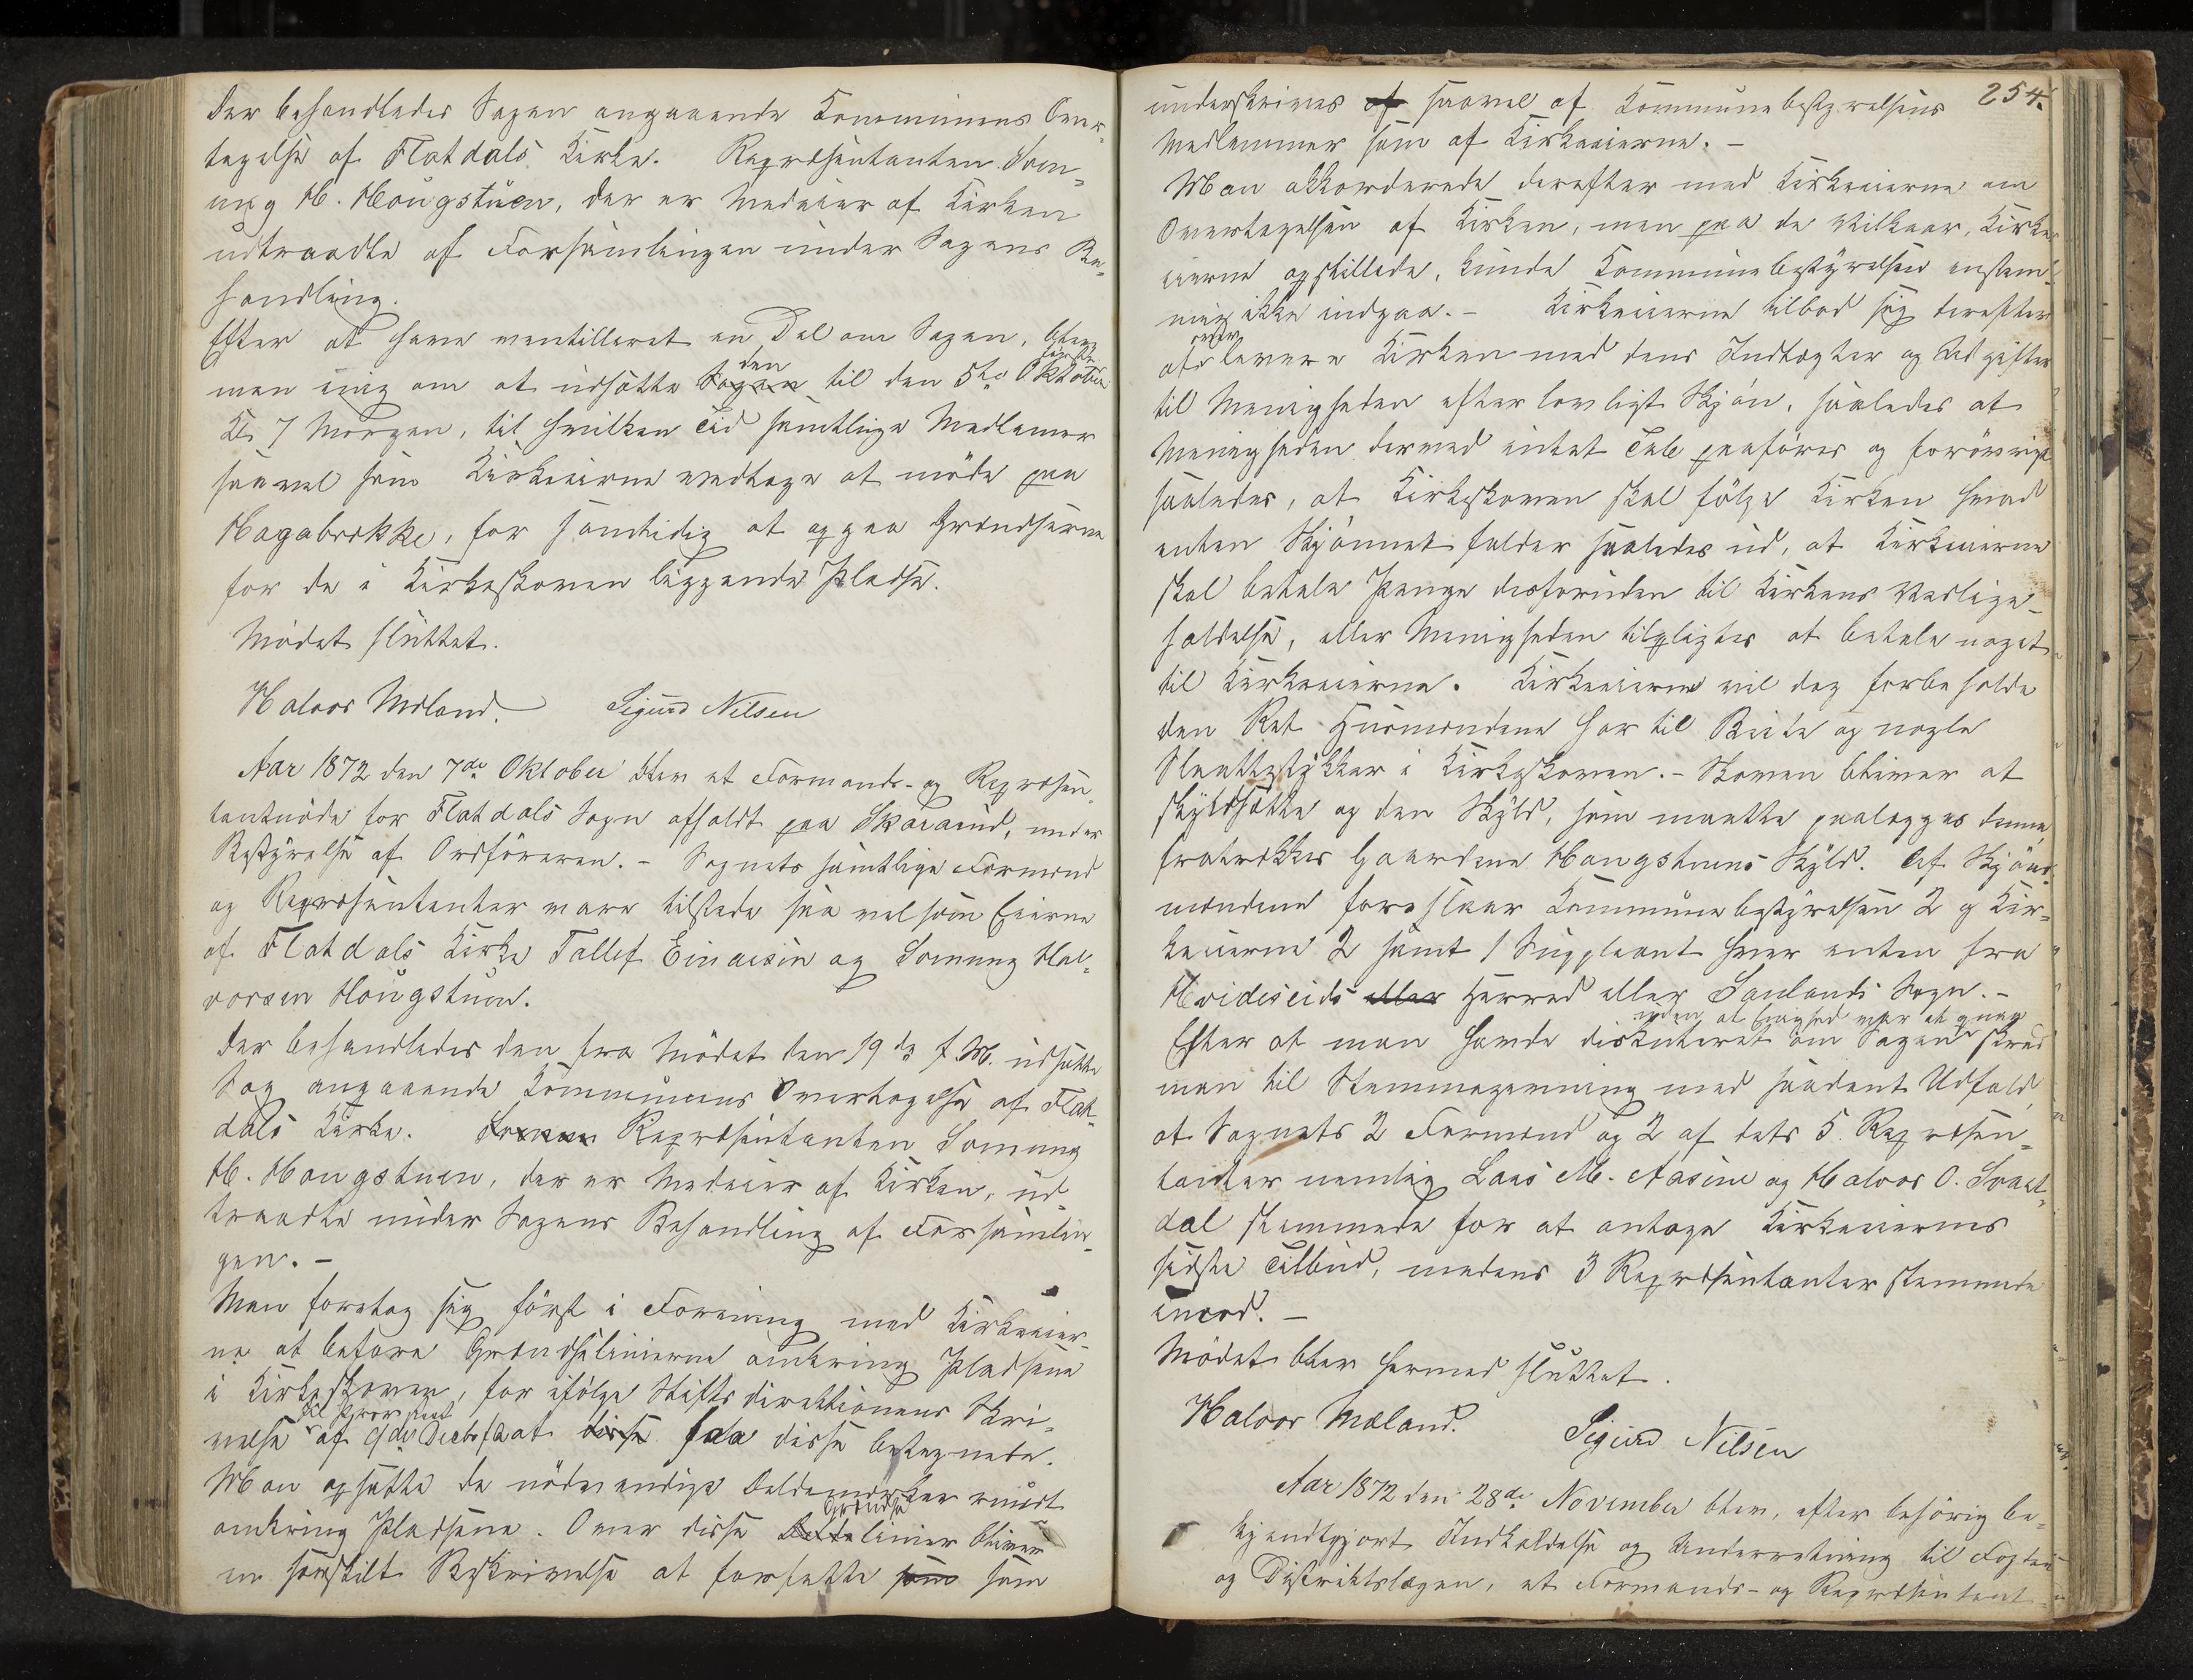 Der behandledes Sagen angaaende Kommunens Over-
tagelse af Flatdals Kirke. Repræsentanten Som-
ung H. Høugstuen, der er Medeier af Kirken
udtraadte af Forsamlingen under Sagens Be-
handling.
Efter at have ventilleret en Del om Sagen, blev
man enig om at udsætte Sagen den til den 5te Oktober
Kl. 7 Morgen, til hvilken Tid samtlige Medlemer
saavel som Kirkeeierne vedtoge at møde paa
Hagabrekke, for samtidig at opgaa Grændserne
for de i Kirkeskoven liggende Pladse.
Mødet sluttet.
Halvor Mæland. Sigurd Nilsen
Aar 1872 den 7de Oktober blev et Formands- og Repræsen-
tantmøde for Flatdals Sogn afholdt paa Skaraund, under
Bestyrelse af Ordføreren. - Sognets samtlige Formænd
og Repræsentanter vare tilstede saa vel som Eierne
af Flatdals Kirke Tallef Einarsen og Somung Hal-
vorsen Høugstuen.
Der behandledes den fra Mødet den 19de f. M. udsatte
Sag angaaende Kommunens Overtagelse af Flat-
dals Kirke. Repræsentanten Somung
H. Høugstuen, der er Medeier af Kirken, ud-
traadte under Sagens Behandling af Forsamlin-
gen. -
Man foretog sig først i Forening med Kirkeeier-
ne at befare Grændselinierne omkring Pladsene
i Kirkeskoven, for ifølge Stiftsdirektionens Skri-
velse til Provsten af 9de Decbr at disse faa disse betegnede.
Man opsatte de nødvendige Deldemerker rundt
omkring Pladsene. Over disse Delde Grændse linier bliver
en særskilt Beskrivelse at forfatte som som
254.
underskrives af saavel af Kommunebestyrelsens
Medlemmer som af Kirkeeierne. -
Man akkorderede derefter med Kirkeeierne om
Overtagelsen af Kirken, men paa de Vilkaar, Kirke-
eierne opstillede, kunde Kommunebestyrelsen enstem-
mig ikke indgaa. - Kirkeeierne tilbød sig derefter
at levere Kirken med dens Indtægter og Udgifter
til Menigheden efter lovligt Skjøn, saaledes at
Menigheden dermed intet Tab paaføres og forøvrigt
saaledes, at Kirkeskoven skal følge Kirken hvad
enten Skjønnet falder saaledes ud, at Kirkeeierne
skal betale Penge desforuden til Kirkens Vedlige-
holdelse, eller Menigheden tilpligtes at betale noget
til Kirkeeierne. Kirkeeierne vil dog forbeholde
den Ret Husmændene har til Beite og nogle
Slaattestykker i Kirkeskoven. - Skoven bliver at
skyldsætte og den Skyld, som maatte paalægges denne
fratrækkes Gaardene Høugstuens Skyld. Af Skjøns-
mændene foreslaar Kommunebestyrelsen 2 og Kir-
keeierne 2 samt 1 Suppleant hver enten fra
Hvideseids eller Herred eller Sanlands Sogn. -
Efter at man havde diskuteret om Sagen uden at Enighed var at opnaa skred
man til Stemmegivning med saadant Udfald,
at Sognets 2 Formænd og 2 af dets 5 Repræsen-
tanter nemlig Laas M. Aasine og Halvor O. Svart-
dal stemmede for at antage Kirkeeiernes
sidste Tilbud, medens 3 Repræsentanter stemmede
imod. -
Mødet blev hermed sluttet.
Halvor Mæland. Sigurd Nilsen
Aar 1872 den 28de November blev, efter behørig be-
kjendtgjort Indkaldelse og Underretning til Fogden
og Distriktslægen, et Formands- og Repræsentant-